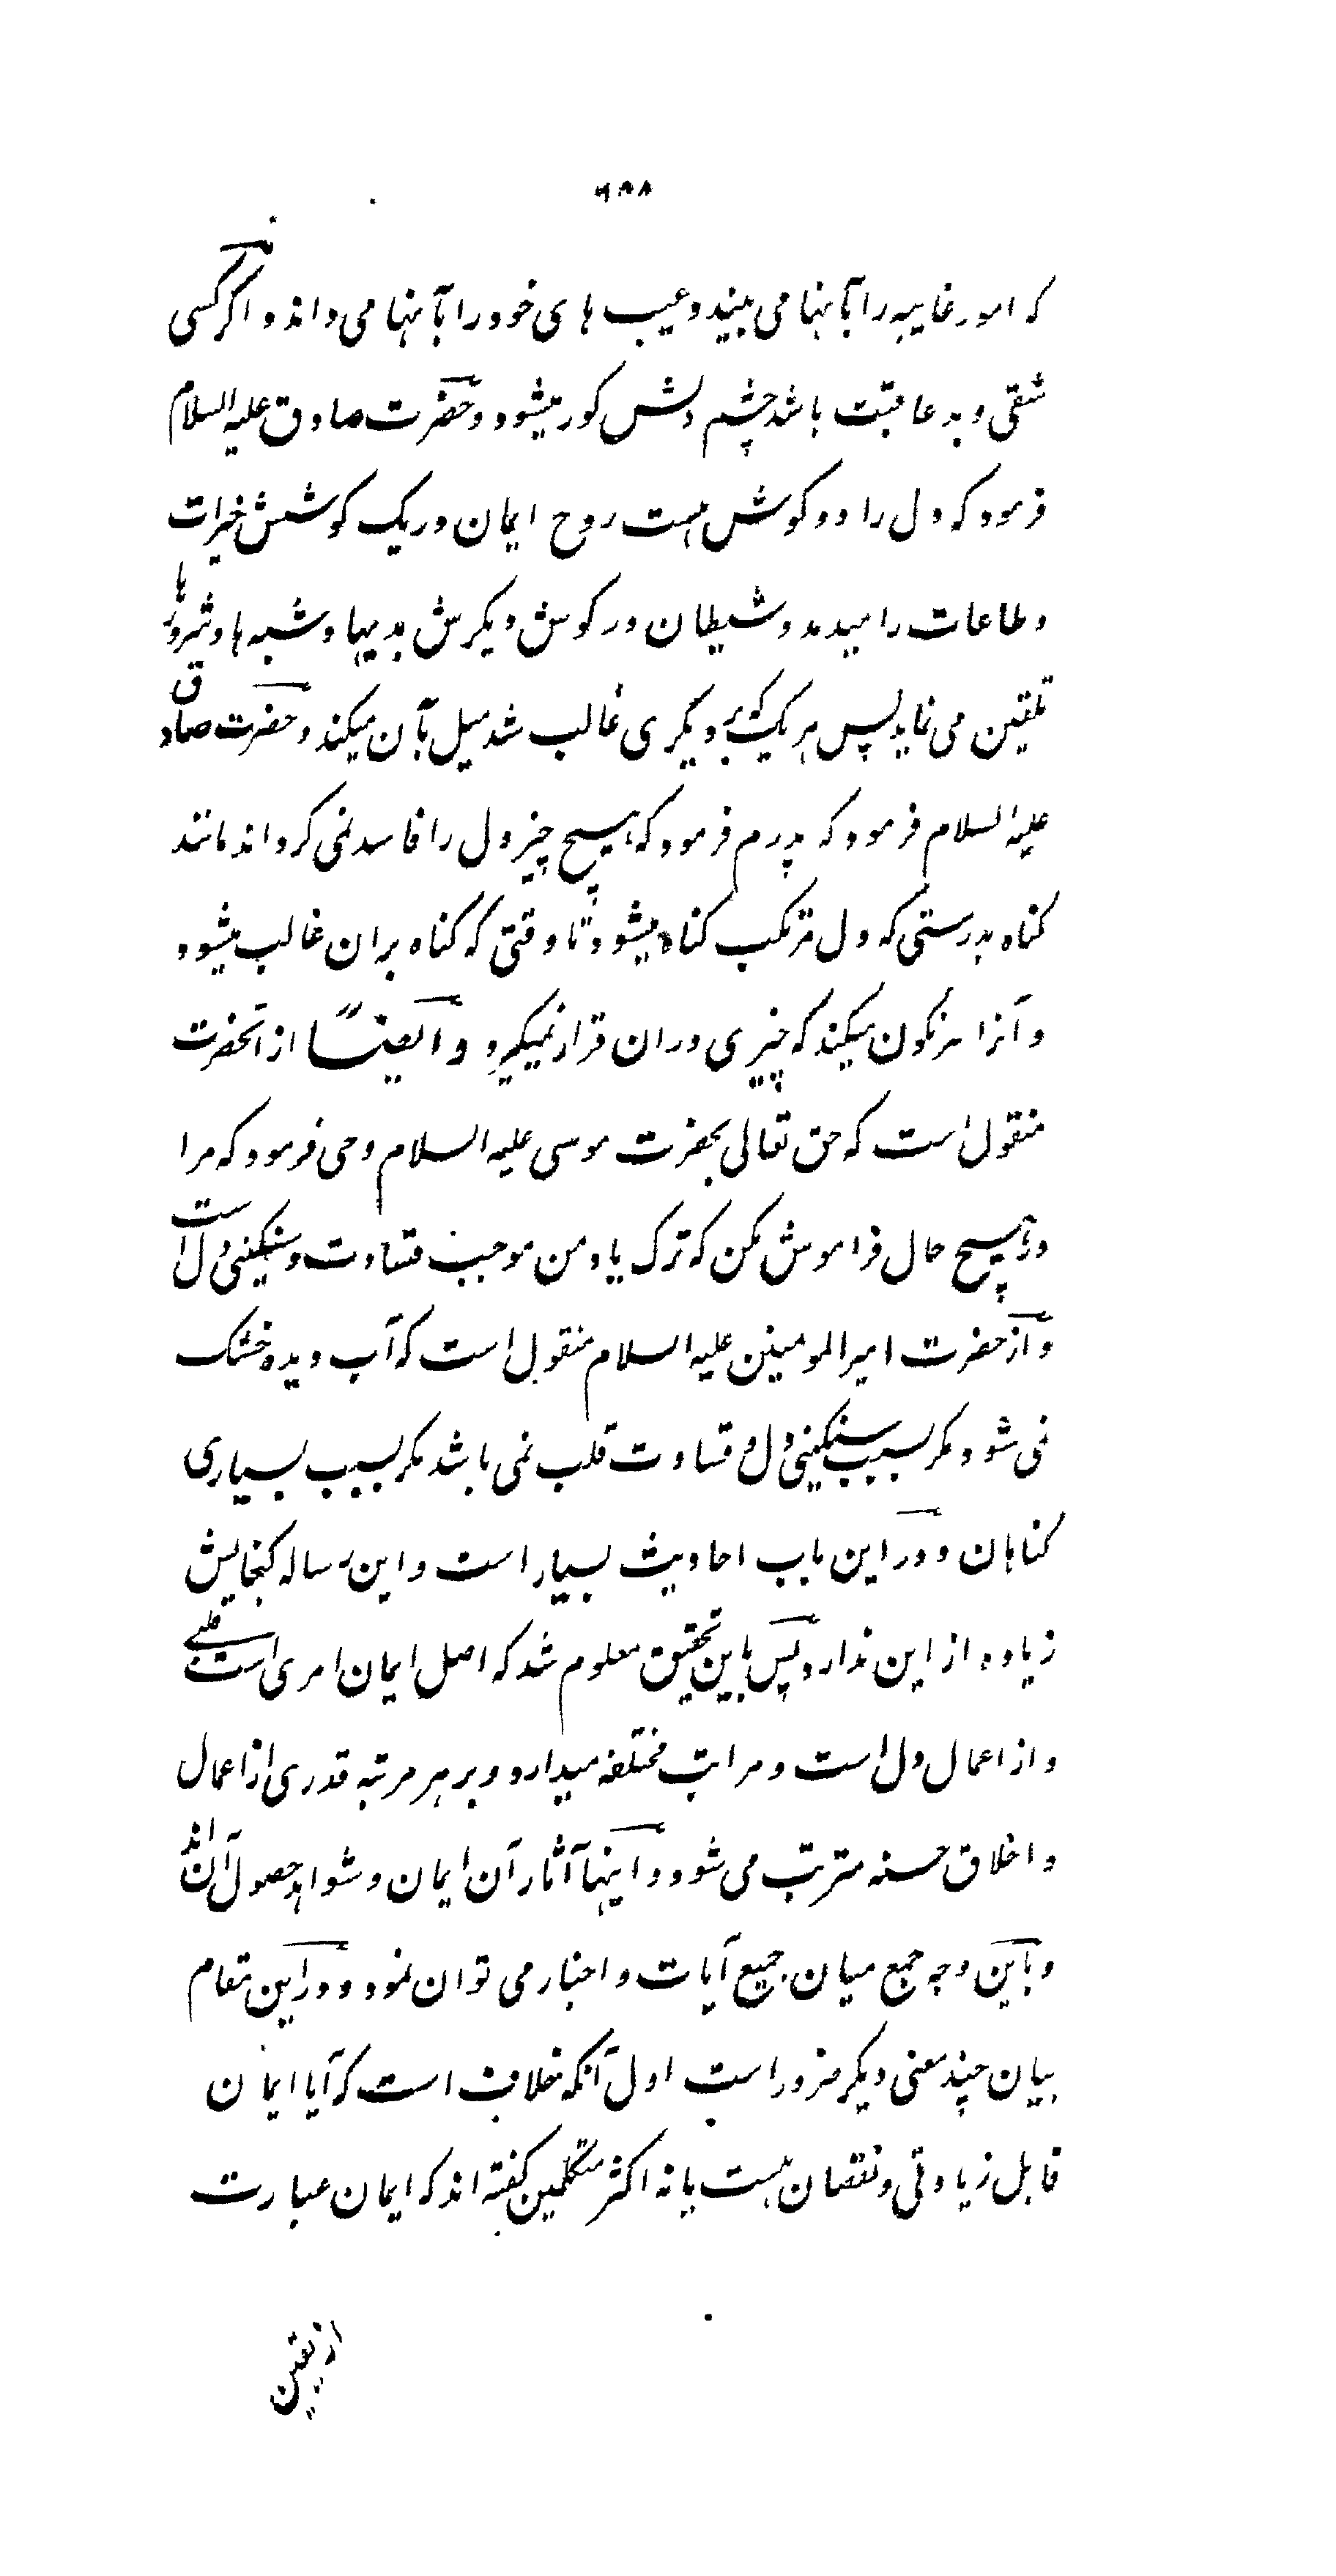 ۶۸۸
که امور غایبه را بآنها می بیند و عیب های خود را بآنها می داند و اگر کسی
شقی و بد عاقبت باشد چشم دلش کور میشود و حضرت صادق علیه السلام
فرمود که دل را دو گوش هست روح ایمان در یک گوشش خیرات
و طاعات را میدمد و شیطان در گوش دیگرش بدیها و شبه ها و شرور ها
تلقین می نماید پس هر یک که بر دیگری غالب شد میل بآن میکند و حضرت صادق
علیه السلام فرمود که پدرم فرمود که هیچ چیز دل را فاسد نمی گرداند مانند
گناه بدرستی که دل مرتکب گناه میشود تا وقتی که گناه بران غالب میشود
و آنرا سرنگون میکند که چیزی دران قرار نمیگیرد و ایضاً از آنحضرت
منقول است که حق تعالی بحضرت موسی علیه السلام وحی فرمود که مرا
در هیچ حال فراموش مکن که ترک یاد من موجب قساوت و سنگینی دل است
و از حضرت امیر المومنین علیه السلام منقول است که آب دیده خشک
نمی شود مگر بسبب سنگینی دل و قساوت قلب نمی باشد مگر بسبب بسیاری
گناهان و در این باب احادیث بسیار است و این رساله گنجایش
زیاده از این ندارد پس باین تحقیق معلوم شد که اصل ایمان امری است قلبی
و از اعمال دل است و مراتب مختلفه میدارد و بر هر مرتبه قدری از اعمال
و اخلاق حسنه مترتب می شود و اینها آثار آن ایمان و شواهد حصول آن اند
و باین وجه جمع میان جمیع آیات و اخبار می توان نمود و در این مقام
بیان چند معنی دیگر ضرور است اول آنکه خلاف است که آیا ایمان
قابل زیادتی و نقصان هست یا نه اکثر متکلمین گفته اند که ایمان عبارت
از یقین